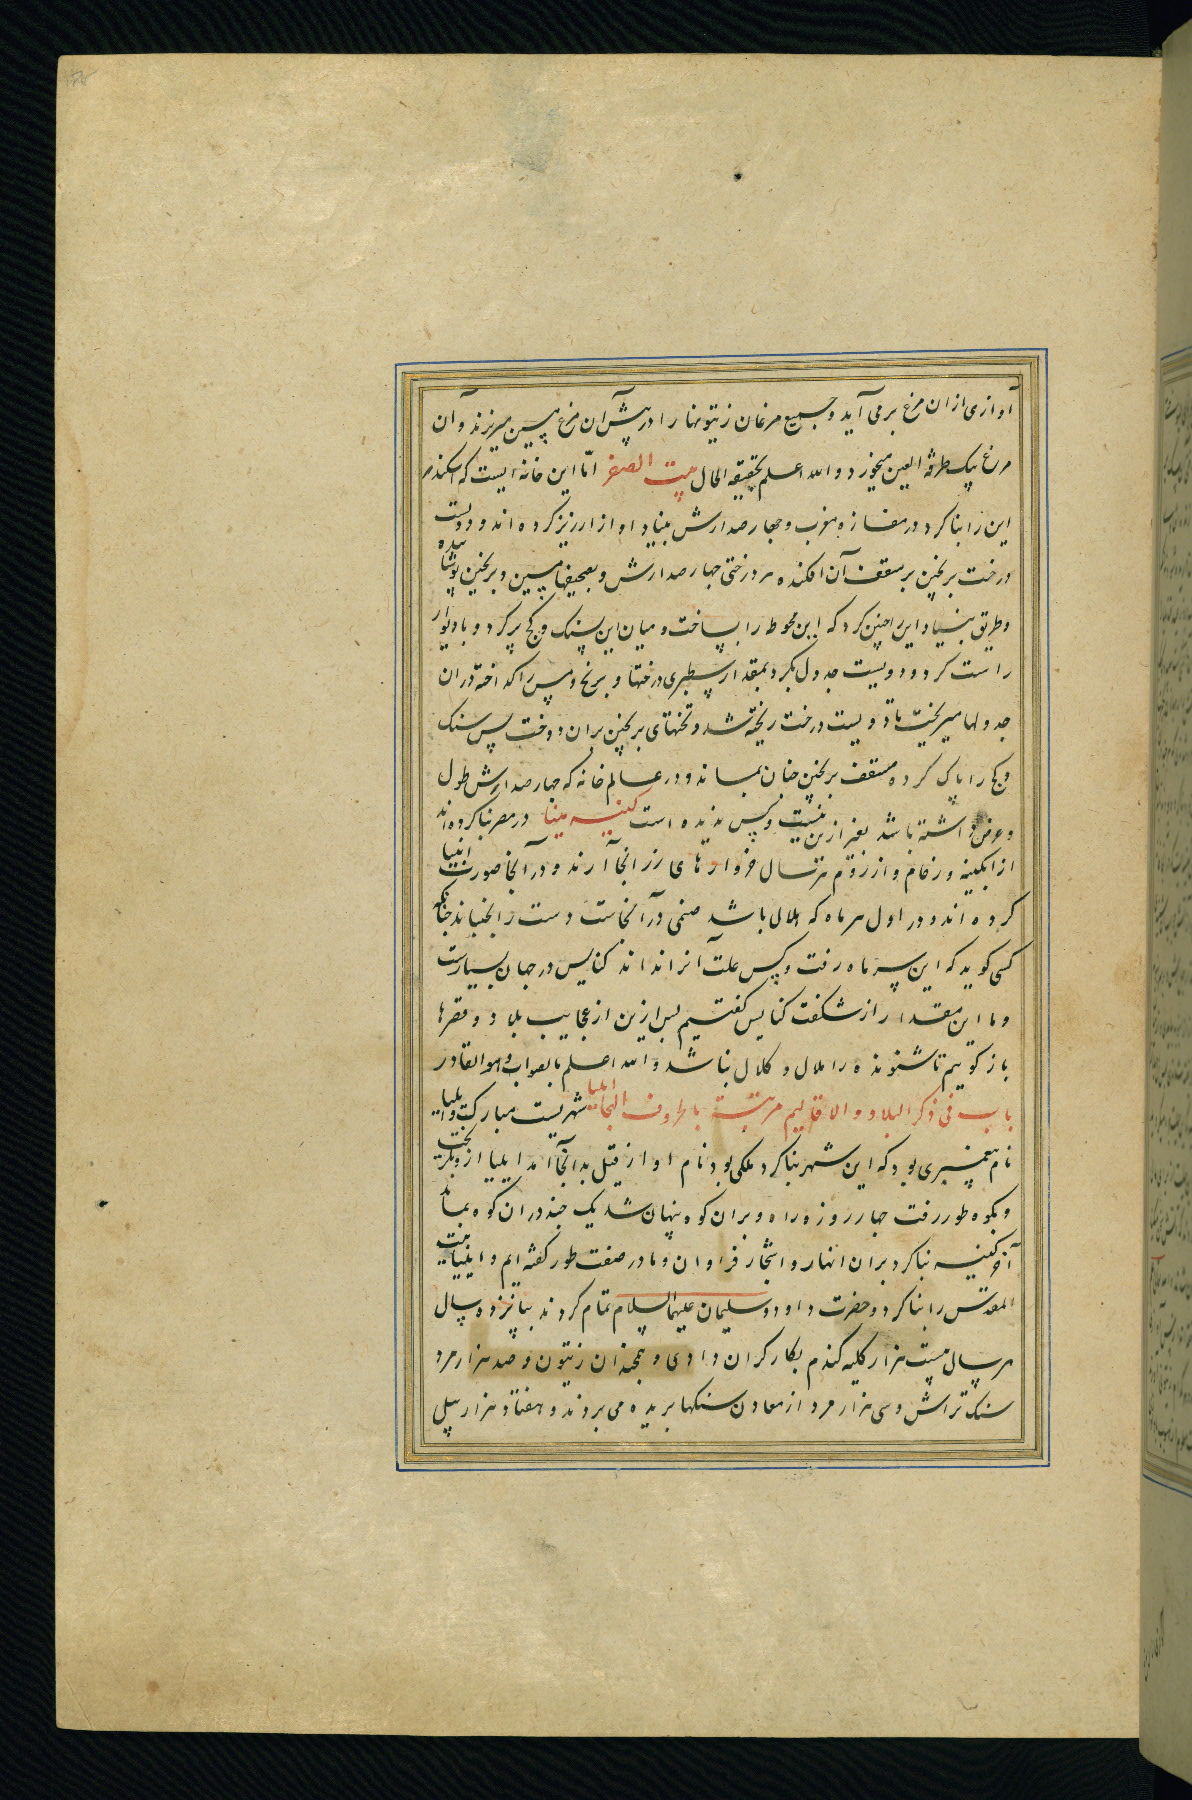 آوازی از ان مرغ برمی آید و جمیع مرغان زیتونها را در پیش آن مرغ مسین میریزند و آن
مرغ بیک طرفة العین میخورد و الله اعلم بحقیقه الحال بیت الصفر امّا این خانه ایست که اسکندر
این را بنا کرد در مفازه مغرب و چهار صد ارش بنیاد او از ارزیز کرده اند و دویست
درخت برنجین بر سقف آن افکنده هر درختی چهار صد ارش و بصحیفها مسین و برنجین پوشانیده
و طریق بنیاد این را چنین کرد که این محوطه را بساخت و میان این بسنک و کج پر کرد و با دیوار
راست کرد و دویست جدول بکرد بمقدار سطبری درختها و برنج و مس را کداخته در ان
جدولها میریخت تا دویست درخت ریخته شد و تختهای برنجین بران دوخت پس سنک
و کج را پاک کرده مسقف برنجین چنان بماند و در عالم خانه که چهار صد ارش طول
و عرض داشته باشد بغیر ازین نیست و کس ندیده است کنیسه مینا در مصر بنا کرده اند
از ابکینه و رخام و از روم هر سال خروارهای زر انجا آرند و در آنجا صورت انبیا
کرده اند و در اول هر ماه که هلال باشد صنمی در آنجاست دست را بجنباند چنانکه
کسی کوید که این سر ماه رفت و کس علت آنرا نداند کنایس در جهان بسیارست
و ما این مقدار از شکفت کنایس کفتیم پس ازین از عجایب بلاد و قصرها
باز کوییم تا شنونده را ملال و کلال نباشد و الله اعلم بالصواب و هو القادر
باب فی ذکر البلاد و الاقالیم مرتبة باطراف الهجا ایلیا شهریست مبارک و ایلیا
نام پیغمبری بود که این شهر بنا کرد ملکی بود نام او از قیل بدانجا آمد ایلیا از وی بکریخت
و بکوه طور رفت چهار روزه راه و بران کوه پنهان شد یک چند در ان کوه بماند
آخر کنیسه بنا کرد بران انهار و اشجار فراوان و ما در صفت طور کفته ایم و ایلیا بیت
المقدس را بنا کرد و حضرت داود و سلیمان علیهما السلام تمام کردند بپانزده سال
هر سال بیست هزار کلیه کندم بکارکران دادی و همچندان زیتون و صد هزار مرد
سنک تراش و سی هزار مرد از معادن سنکها بریده می بردند و هفتاد هزار بیلی